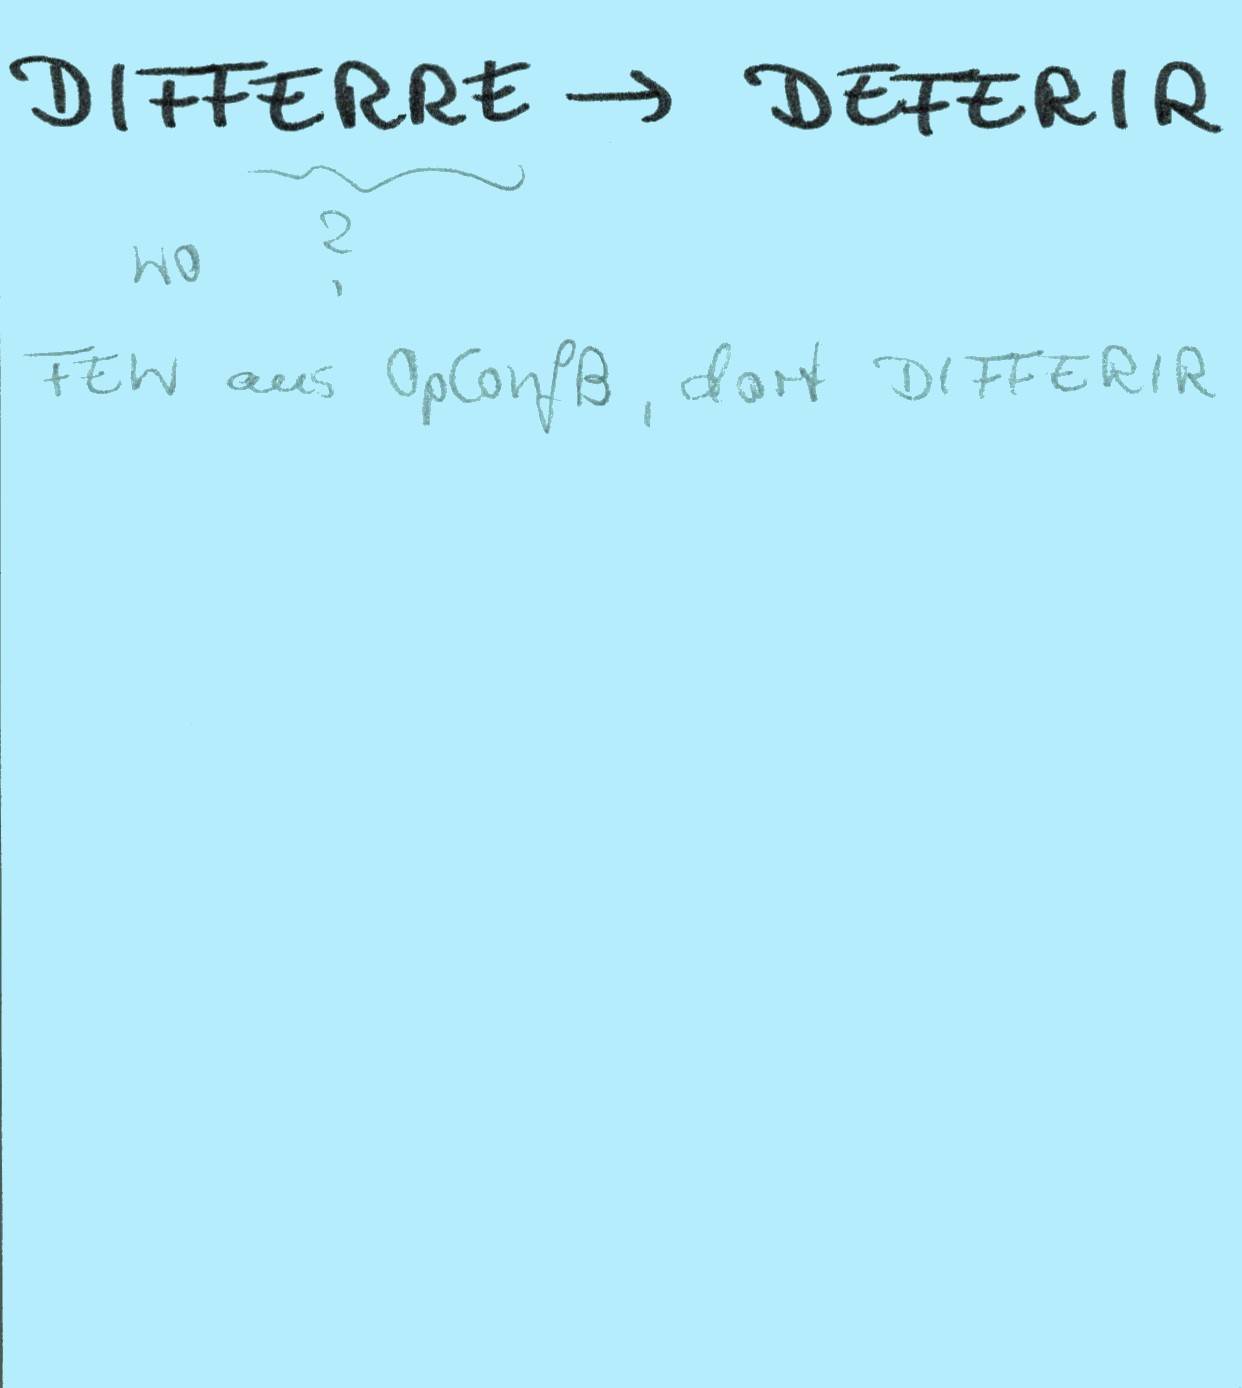 DIFFERRE → DEFERIR
wo ?
FEW aus OpConfB, dort DIFFERIR